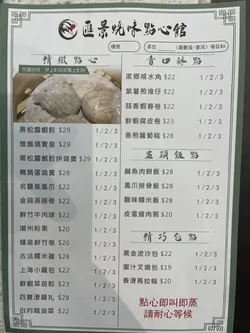 匯景燒味點心館
樓號
茶位
每位$6
精緻點心
黑松露蝦餃 $29 1/2/3
懷舊燒賣皇 $29 1/2/3
黑松露蝦餃拼燒賣 $29 1/2/3
鵪鶉蛋燒賣 $26 1/2/3
名醬蒸鳳爪 $26 1/2/3
金蒜蒸排骨 $22 1/2/3
鮮竹牛肉球 $22 1/2/3
潮州粉果 $20 1/2/3
鐘皇鮮竹卷 $20 1/2/3
古法糯米雞 $28 1/2/3
上海小籠包 $22 1/2/3
鮮蝦菜苗餃 $29 1/2/3
四寶滑雞扎 $28 1/2/3
白灼豬潤菜 $20 1/2/3
香口酥點
家鄉咸水角 $22 1/2/3
紫薯煎堆仔 $22 1/2/3
蒜香蝦春卷 $22 1/2/3
鮮蝦腐皮卷 $23 1/2/3
香煎蘿蔔糕 $28 1/2/3
盅頭飯點
鹹魚肉餅飯 $28 1/2/3
鳳爪排骨飯 $28 1/2/3
臘味糯米飯 $28 1/2/3
皮蛋瘦肉粥 $20 1/2/3
精巧包點
黑金流沙包 $22 1/2/3
蜜汁叉燒包 $19 1/2/3
香滑馬拉糕 $20 1/2/3
點心即叫即蒸
請耐心等候